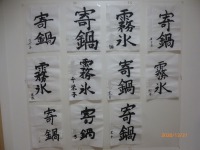 寄鍋
寄鍋
霧氷
寄鍋
霧氷
霧氷
寄鍋
霧氷
寄鍋
寄鍋
寄鍋